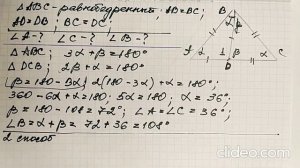 △ABC-равнобедренный, AB=BC;
AD=DB, BC=DC.
∠A-? ∠C-? ∠B-?
△ABC: 3α+β=180°
△DCB: 2β+α=180°
β=180-3α, 2(180-3α)+α=180°;
360-6α+α=180, 5α=180, α=36°,
β=180-108=72°, ∠A=∠C=36°,
∠B=α+β=72+36=108°
2 способ
B
α
β
A
α
2
1
β
α
C
D
clideo.com